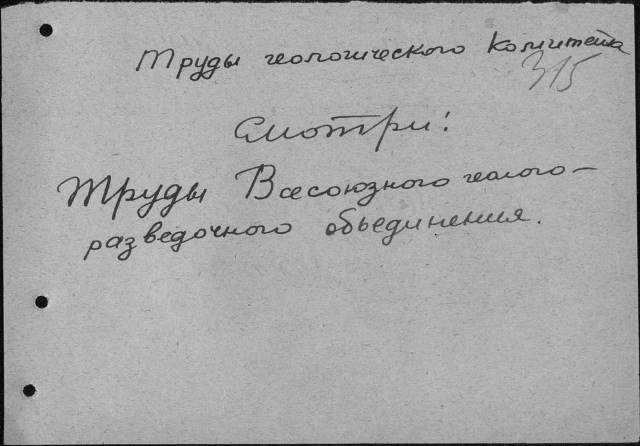 Труды геологического Комитета
315
Смотри!
Труды Всесоюзного геолого-
разведочного объединения.